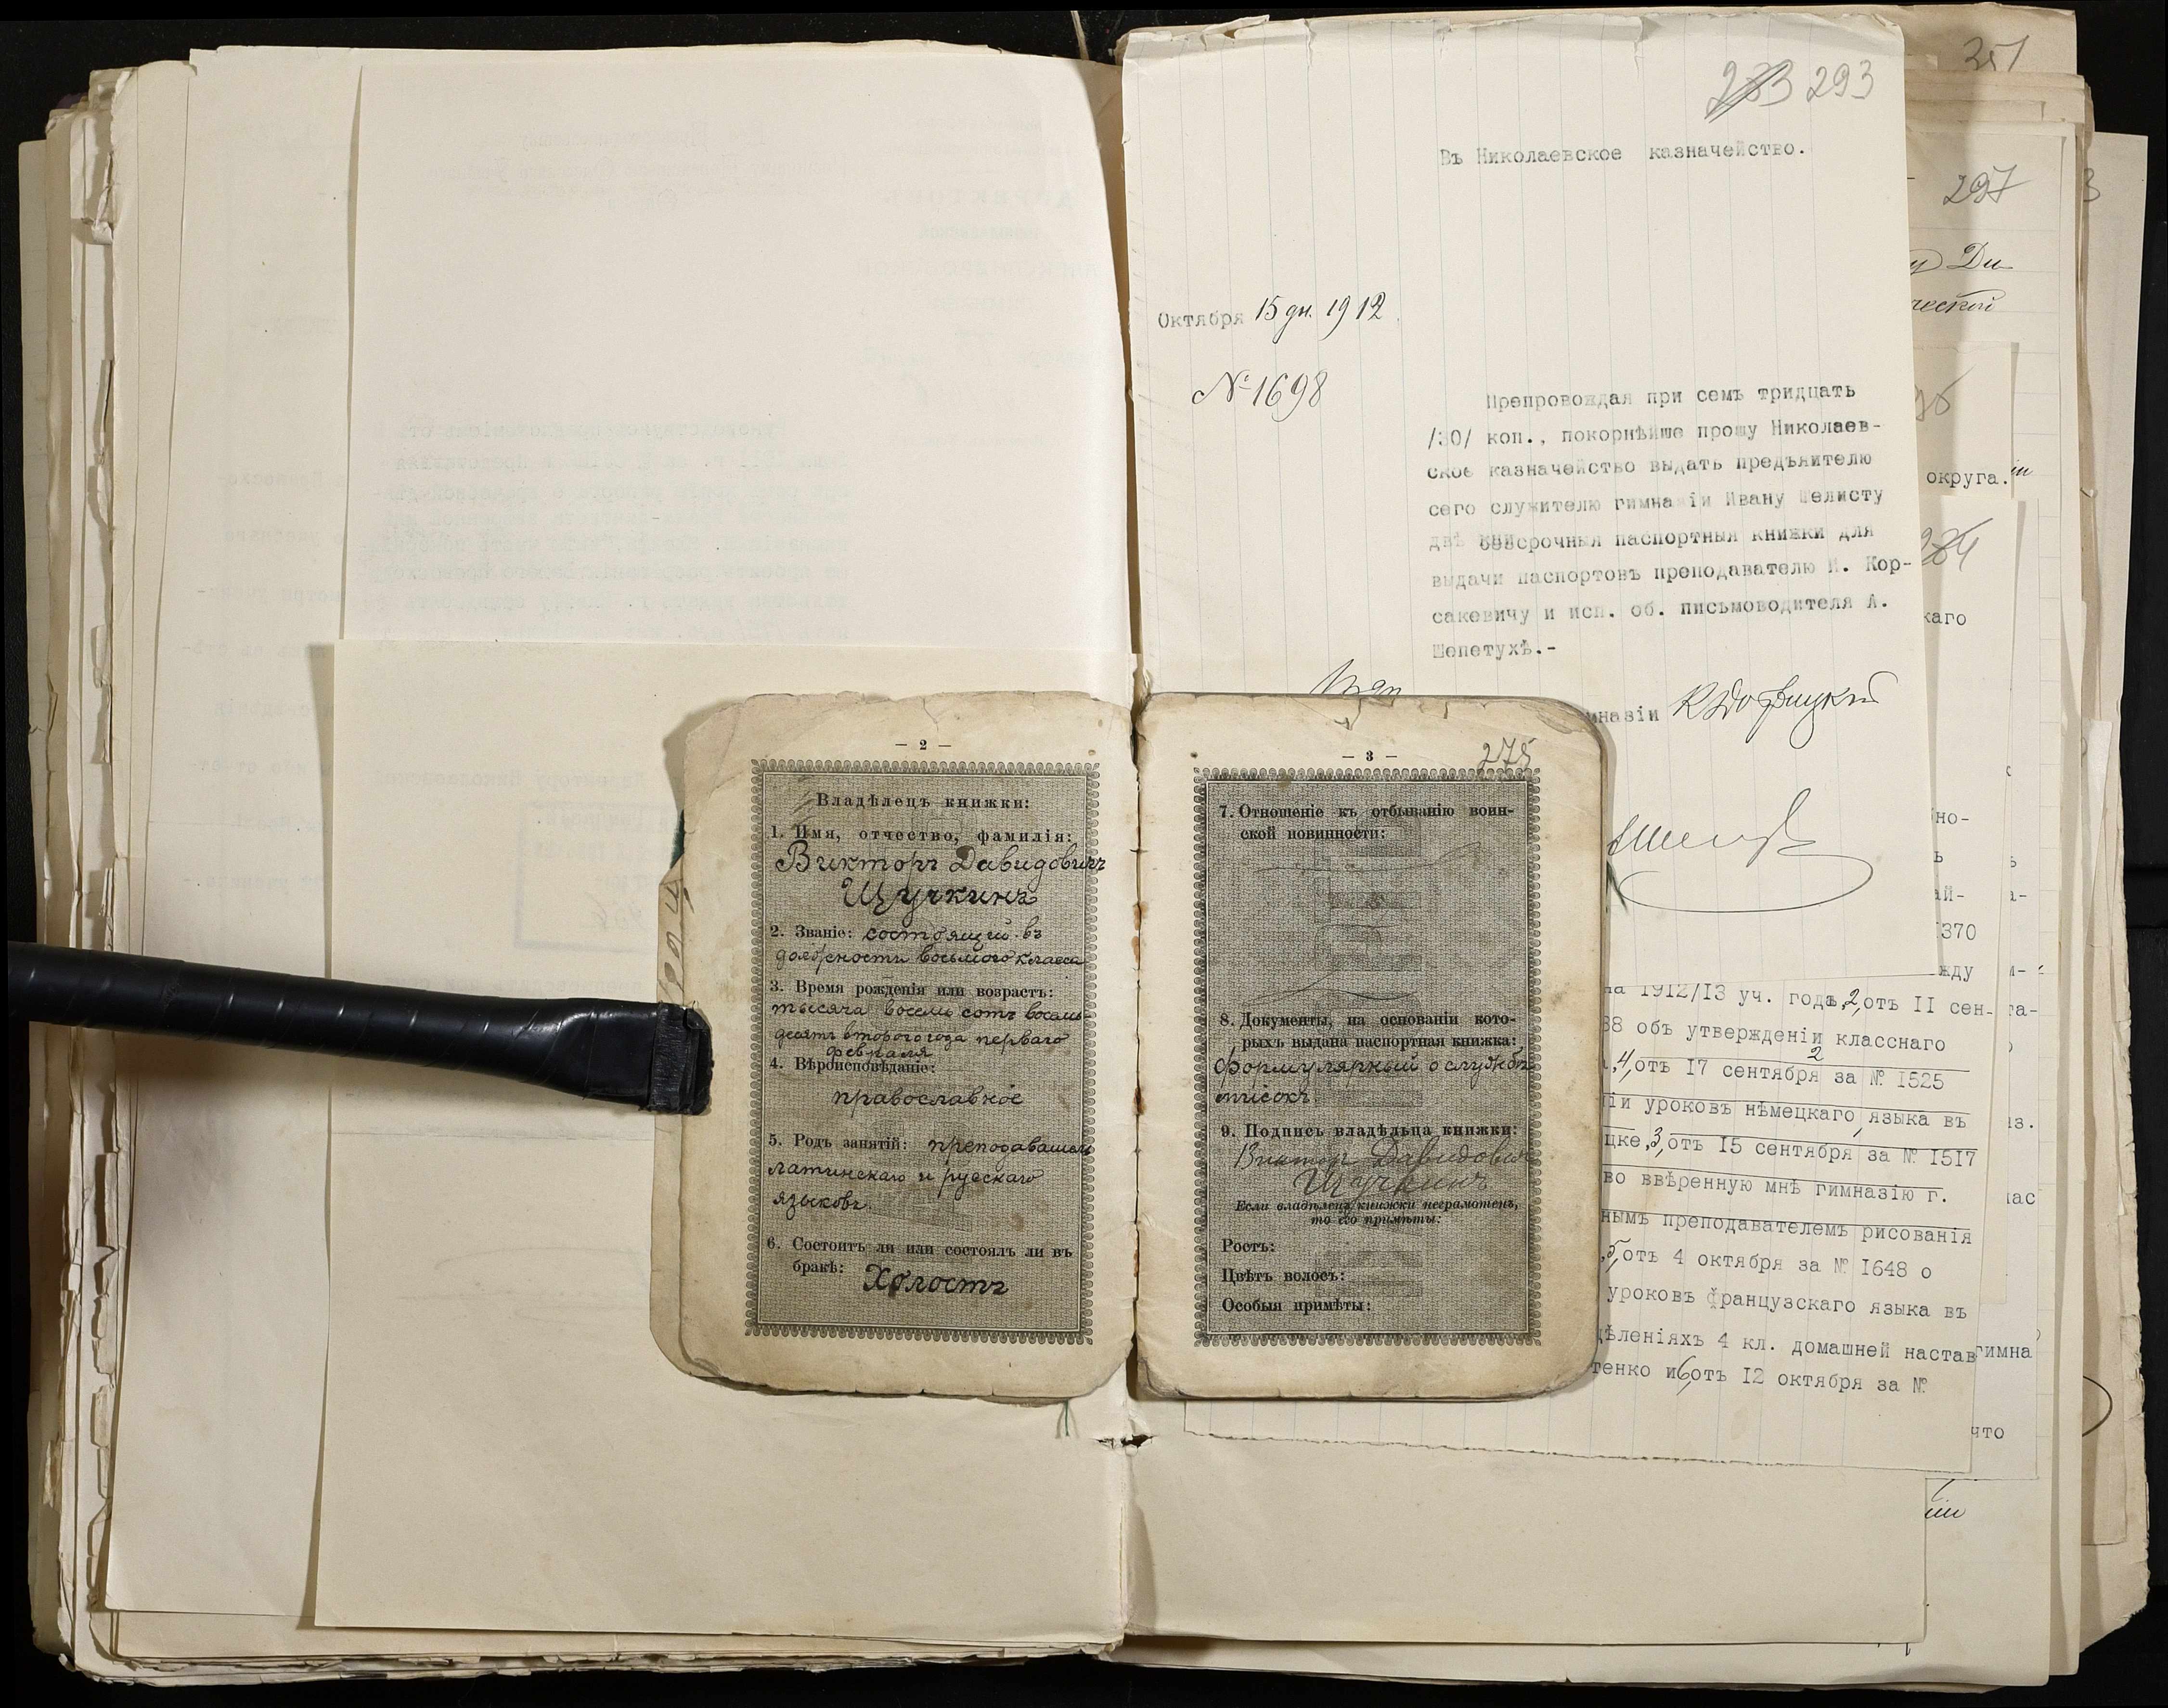 351
297
283 293
Въ Николаевское казначейство.
Октября 15 дн. 1912
№ 1698
Препровождая при семъ тридцать
/30/ коп., покорнѣйше прошу Николаев-
ское казначейство выдать предъявителю
сего служителю гимназіи Ивану Шелисту
двѣ безсрочныя паспортныя книжки для
выдачи паспортовъ преподавателю И. Кор-
сакевичу и исп. об. письмоводителя А.
Шепетухѣ.-
мназіи
— 2 —
Владѣлецъ книжки:
1. Имя, отчество, фамилія:
Викторъ Давидовичъ
Щучкинъ
2. Званіе: состоящій въ
должности восьмого класса
3. Время рожденія или возрастъ:
тысяча восемь сотъ восемь-
десятъ второго года перваго
февраля
4. Вѣроисповѣданіе:
православное
5. Родъ занятій: преподаватель
латинскаго и русскаго
языковъ.
6. Состоитъ ли или состоялъ ли въ
бракѣ: Холостъ
— 3 —
275
7. Отношеніе къ отбыванію воин-
ской повинности:
8. Документы, на основаніи кото-
рыхъ выдана паспортная книжка:
формулярный о службѣ
списокъ.
9. Подпись владѣльца книжки:
Викторъ Давидович
Щучкинъ
Если владѣлецъ книжки неграмотенъ,
то его примѣты:
Ростъ:
Цвѣтъ волосъ:
Особыя примѣты:
у Ди
ческой
округа.
284
каго
но-
ай-
370
жду
на 1912/13 уч. годъ, 2, отъ II сен-
38 объ утвержденіи класснаго
, 4, отъ 17 сентября за № 1525
іи уроковъ нѣмецкаго языка въ
цке, 3, отъ 15 сентября за № 1517
во ввѣренную мнѣ гимназію г.
нымъ преподавателемъ рисованія
, 5, отъ 4 октября за № 1648 о
уроковъ французскаго языка въ
дѣленіяхъ 4 кл. домашней настав
тенко и 6, отъ 12 октября за №
гимна
что